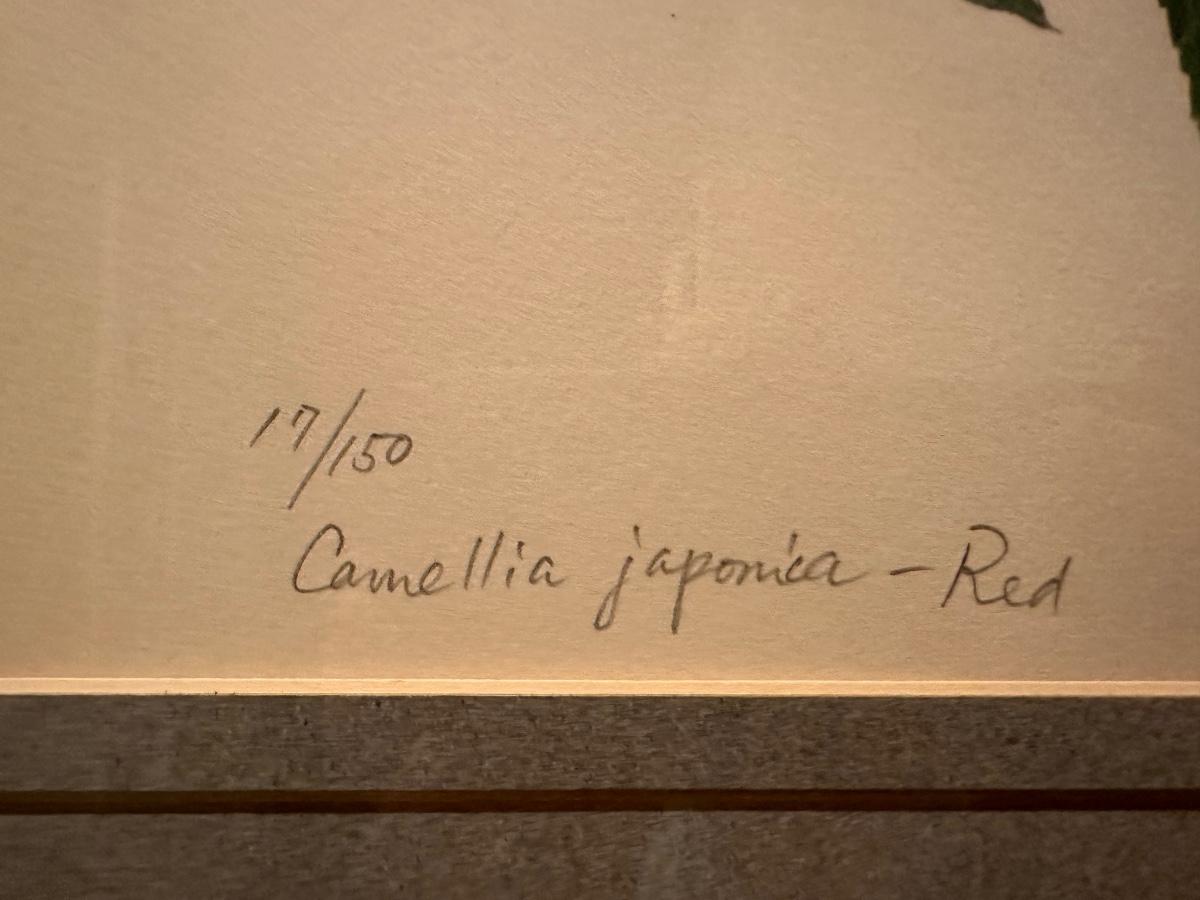 17/150
Camellia japonica - Red